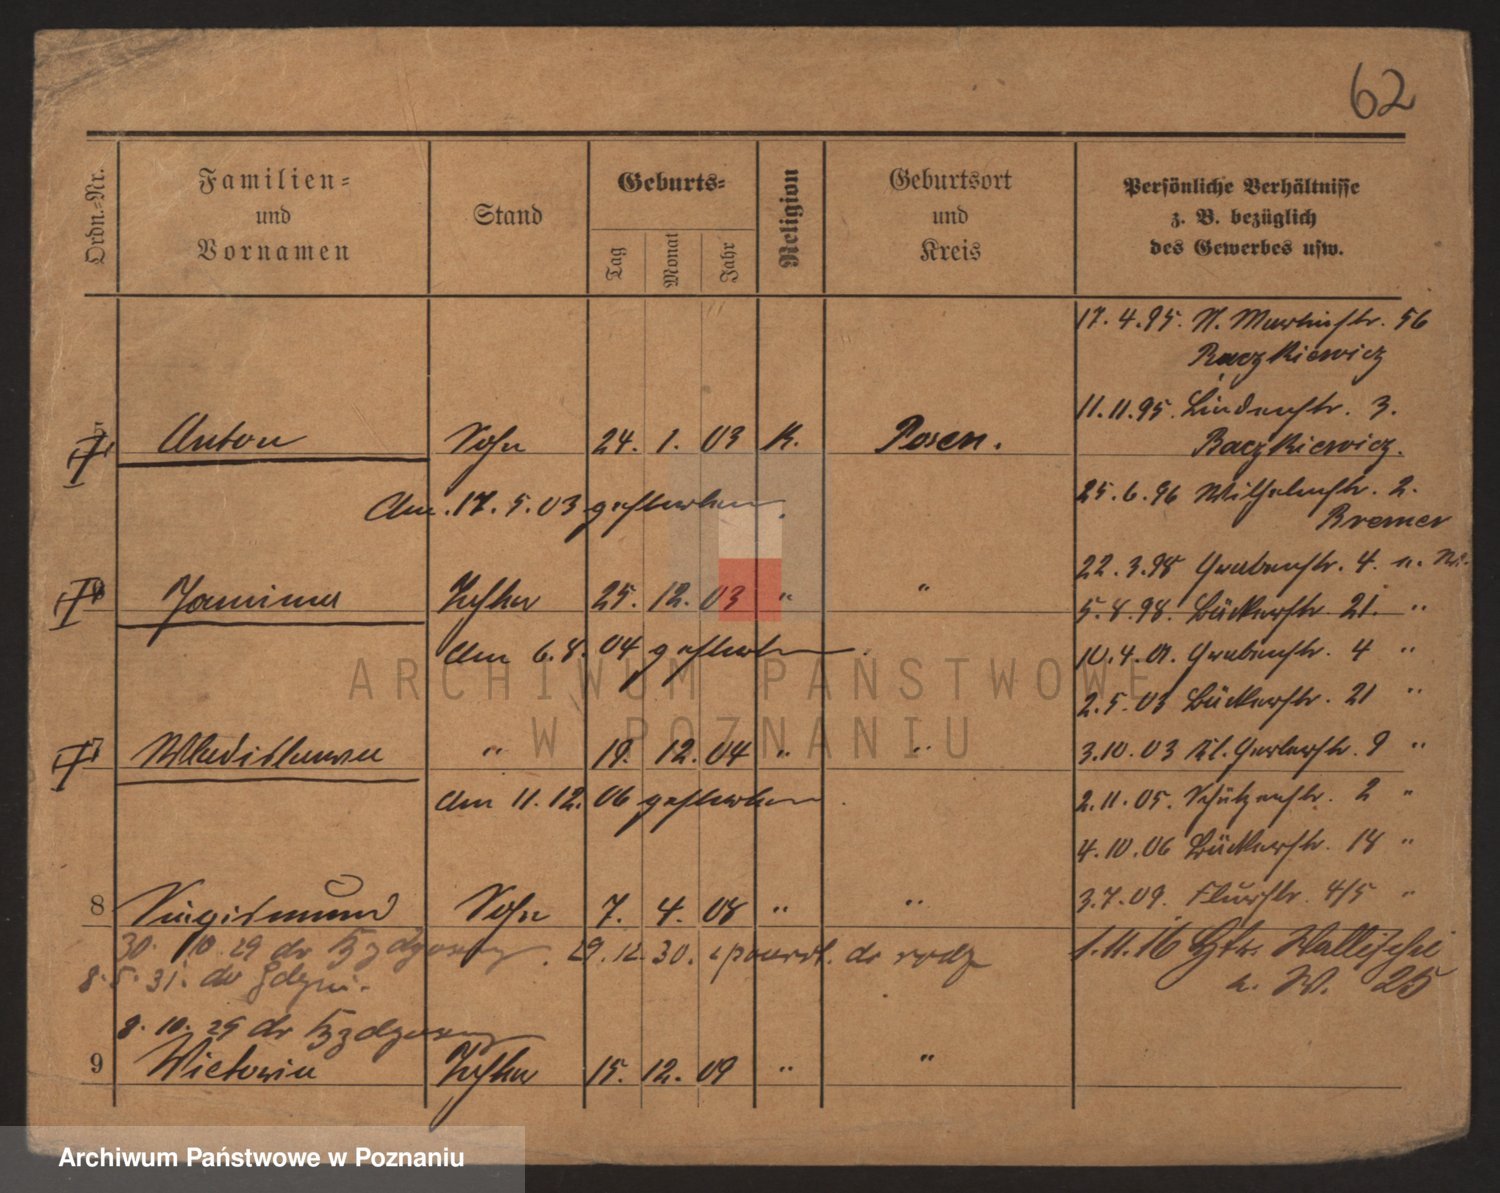 62
Ordn.-Nr.
Familien-
und
Vornamen
Stand
Geburts-
Tag
Monat
Jahr
Religion
Geburtsort
und
Kreis
Persönliche Verhältnisse
z. B. bezüglich
des Gewerbes usw.
17. 4. 95. St. Martinstr. 56
Raczkiewicz
11. 11. 95. Lindenstr. 3.
Raczkiewicz.
Anton Sohn 24. 1. 03 K. Posen.
25. 6. 96 Wilhelmstr. 2.
Bremer
Am 17. 5. 03 gestorben.
22. 3. 98 Grabenstr. 4.
Janina Tochter 25. 12. 03 " "
5. 8. 98. Bäckerstr. 21. "
am 6. 8. 04 gestorben.
10. 4. 01. Grabenstr. 4 "
2. 5. 03 Bäckerstr. 21 "
7 Wladislawa " 19. 12. 04 " "
3. 10. 03 Kl. Gerberstr. 9 "
am 11. 12. 06 gestorben.
2. 11. 05. Schützenstr. 2 "
4. 10. 06 Bäckerstr. 18 "
3. 7. 09. Flurstr. 4/5 "
8 Siegismund Sohn 7. 4. 08 " "
30. 10. 29 do Bydgoszczy. 29. 12. 30. powrót do
1. 11. 16 Wallischei
8. 5. 31. do Gdyni.
25
8. 10. 29 do Bydgoszczy
9 Victoria Tochter 15. 12. 09 " "
ARCHIWUM PAŃSTWOWE
W POZNANIU
Archiwum Państwowe w Poznaniu